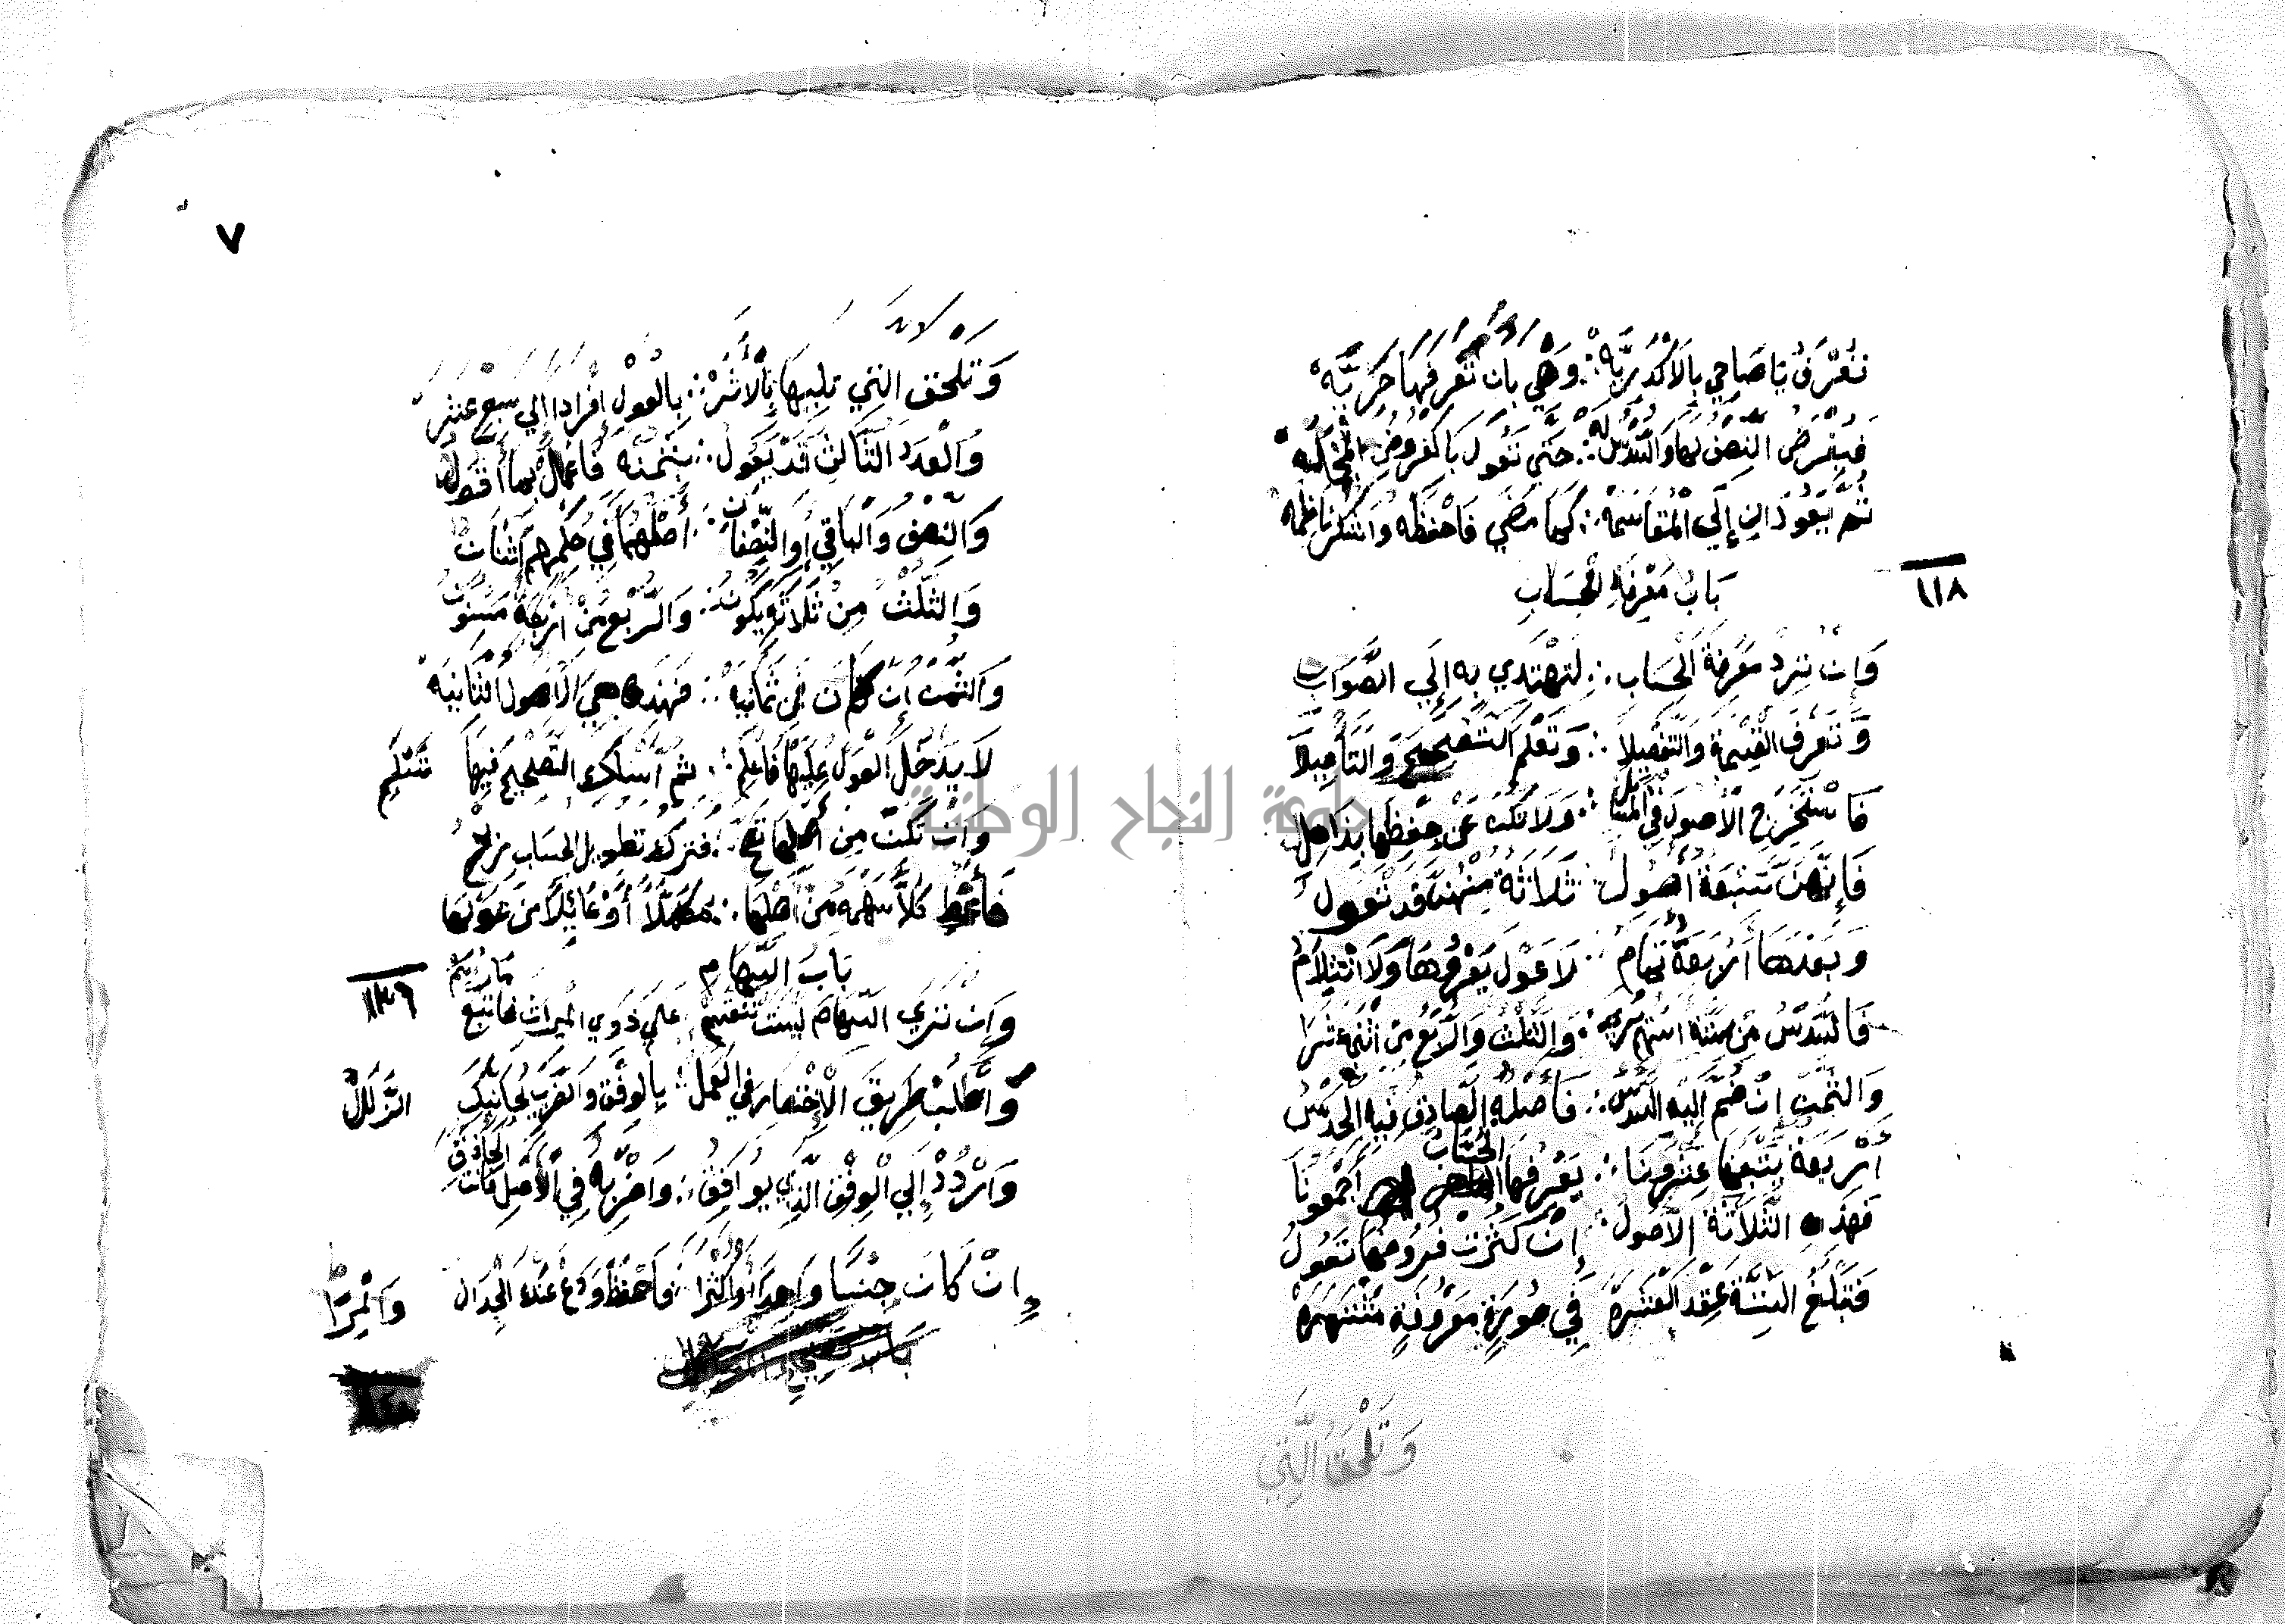 تُعْرَفُ يَا صَاحِ بِالْأَكْدَرِيَّه ∴ وَهْيَ بِأَن تَعْرِفَهَا حَرِيَّه
فَيُفْرَضُ النِّصْفُ لَهَا وَالسُّدْسُ لَهْ ∴ حَتَّى تَعُولَ بِالْفُرُوضِ الْمُجْمَلَه
ثُمَّ يَعُودَانِ إِلَى الْمُقَاسَمَهْ ∴ كَمَا مَضَى فَاحْفَظْهُ وَاشْكُرْ نَاظِمَهْ
بَابُ مَعْرِفَةِ الْحِسَابِ
١١٨
وَإِنْ تُرِدْ مَعْرِفَةَ الْحِسَابِ ∴ لِتَهْتَدِي بِهِ إِلَى الصَّوَابِ
وَتَعْرِفَ الْقِسْمَةَ وَالتَّفْصِيلَا ∴ وَتَعْلَمَ التَّصْحِيحَ وَالتَّأْصِيلَا
فَاسْتَخْرِجِ الْأُصُولَ فِي الْمَسَائِلِ ∴ وَلَا تَكُنْ عَنْ حِفْظِهَا بِذَاهِلِ
فَإِنَّهُنَّ سَبْعَةٌ أُصُولُ ∴ ثَلَاثَةٌ مِنْهُنَّ قَدْ تَعُولُ
وَبَعْدَهَا أَرْبَعَةٌ تَمَامُ ∴ لَا عَوْلَ يَعْرُوهَا وَلَا انْثِلَامُ
فَالسُّدْسُ مِنْ سِتَّةِ أَسْهُمٍ يُرَى ∴ وَالثُّلْثُ وَالرُّبْعُ مِنِ اثْنَيْ عَشَرَا
وَالثُّمْنُ إِنْ ضُمَّ إِلَيْهِ السُّدْسُ ∴ فَأَصْلُهُ الصَّادِقُ فِيهِ الْحَدْسُ
أَرْبَعَةٌ يَتْبَعُهَا عِشْرُونَا ∴ يَعْرِفُهَا الْحُسَّابُ أَجْمَعُونَا
فَهَذِهِ الثَّلَاثَةُ الْأُصُولُ ∴ إِنْ كَثُرَتْ فُرُوضُهَا تَعُولُ
فَتَبْلُغُ السِّتَّةُ عِقْدَ الْعَشَرَهْ ∴ فِي صُورَةٍ مَعْرُوفَةٍ مُشْتَهِرَهْ
وَتَلْحَقُ الَّتِي
٧
وَتَلْحَقُ الَّتِي تَلِيهَا بِالْأَثَرْ ∴ بِالْعَوْلِ إِفْرَادًا إِلَى سَبْعَ عَشَرْ
وَالْعَدَدُ الثَّالِثُ قَدْ يَعُولُ ∴ بِثُمْنِهِ فَاعْمَلْ بِمَا أَقُولُ
وَالنِّصْفُ وَالْبَاقِي أَوِ النِّصْفَانِ ∴ أَصْلُهُمَا فِي حُكْمِهِمُ اثْنَانِ
وَالثُّلْثُ مِنْ ثَلَاثَةٍ يَكُونُ ∴ وَالرُّبْعُ مِنْ أَرْبَعَةٍ مَسْنُونُ
وَالثُّمْنُ إِنْ كَانَ فَمِنْ ثَمَانِيَهْ ∴ فَهَذِهِ هِيَ الْأُصُولُ الثَّانِيَهْ
لَا يَدْخُلُ الْعَوْلُ عَلَيْهَا فَاعْلَمِ ∴ ثُمَّ اسْلُكِ التَّصْحِيحَ فِيهَا تَسْلَمِ
وَإِنْ تَكُنْ مِنْ أَصْلِهَا تَصِحُّ ∴ فَتَرْكُ تَطْوِيلِ الْحِسَابِ رِبْحُ
فَأَعْطِ كُلًّا سَهْمَهُ مِنْ أَصْلِهَا ∴ مُكَمَّلًا أَوْ عَائِلًا مِنْ عَوْلِهَا
بَابُ السِّهَامِ
١٢٦
وَإِنْ تَرَى السِّهَامَ لَيْسَتْ تَنْقَسِمْ ∴ عَلَى ذَوِي الْمِيرَاثِ فَاتْبَعْ مَا رُسِمْ
وَاطْلُبْ طَرِيقَ الْإِخْتِصَارِ فِي الْعَمَلْ ∴ بِالْوَفْقِ وَالضَّرْبِ يُجَانِبْكَ الزَّلَلْ
وَارْدُدْ إِلَى الْوَفْقِ الَّذِي يُوَافِقُ ∴ وَاضْرِبْهُ فِي الْأَصْلِ فَأَنْتَ الْحَاذِقُ
إِنْ كَانَ جِنْسًا وَاحِدًا أَوْ أَكْثَرَا ∴ فَاحْفَظْ وَدَعْ عَنْكَ الْجِدَالَ وَالْمِرَا
جامعة النجاح الوطنية